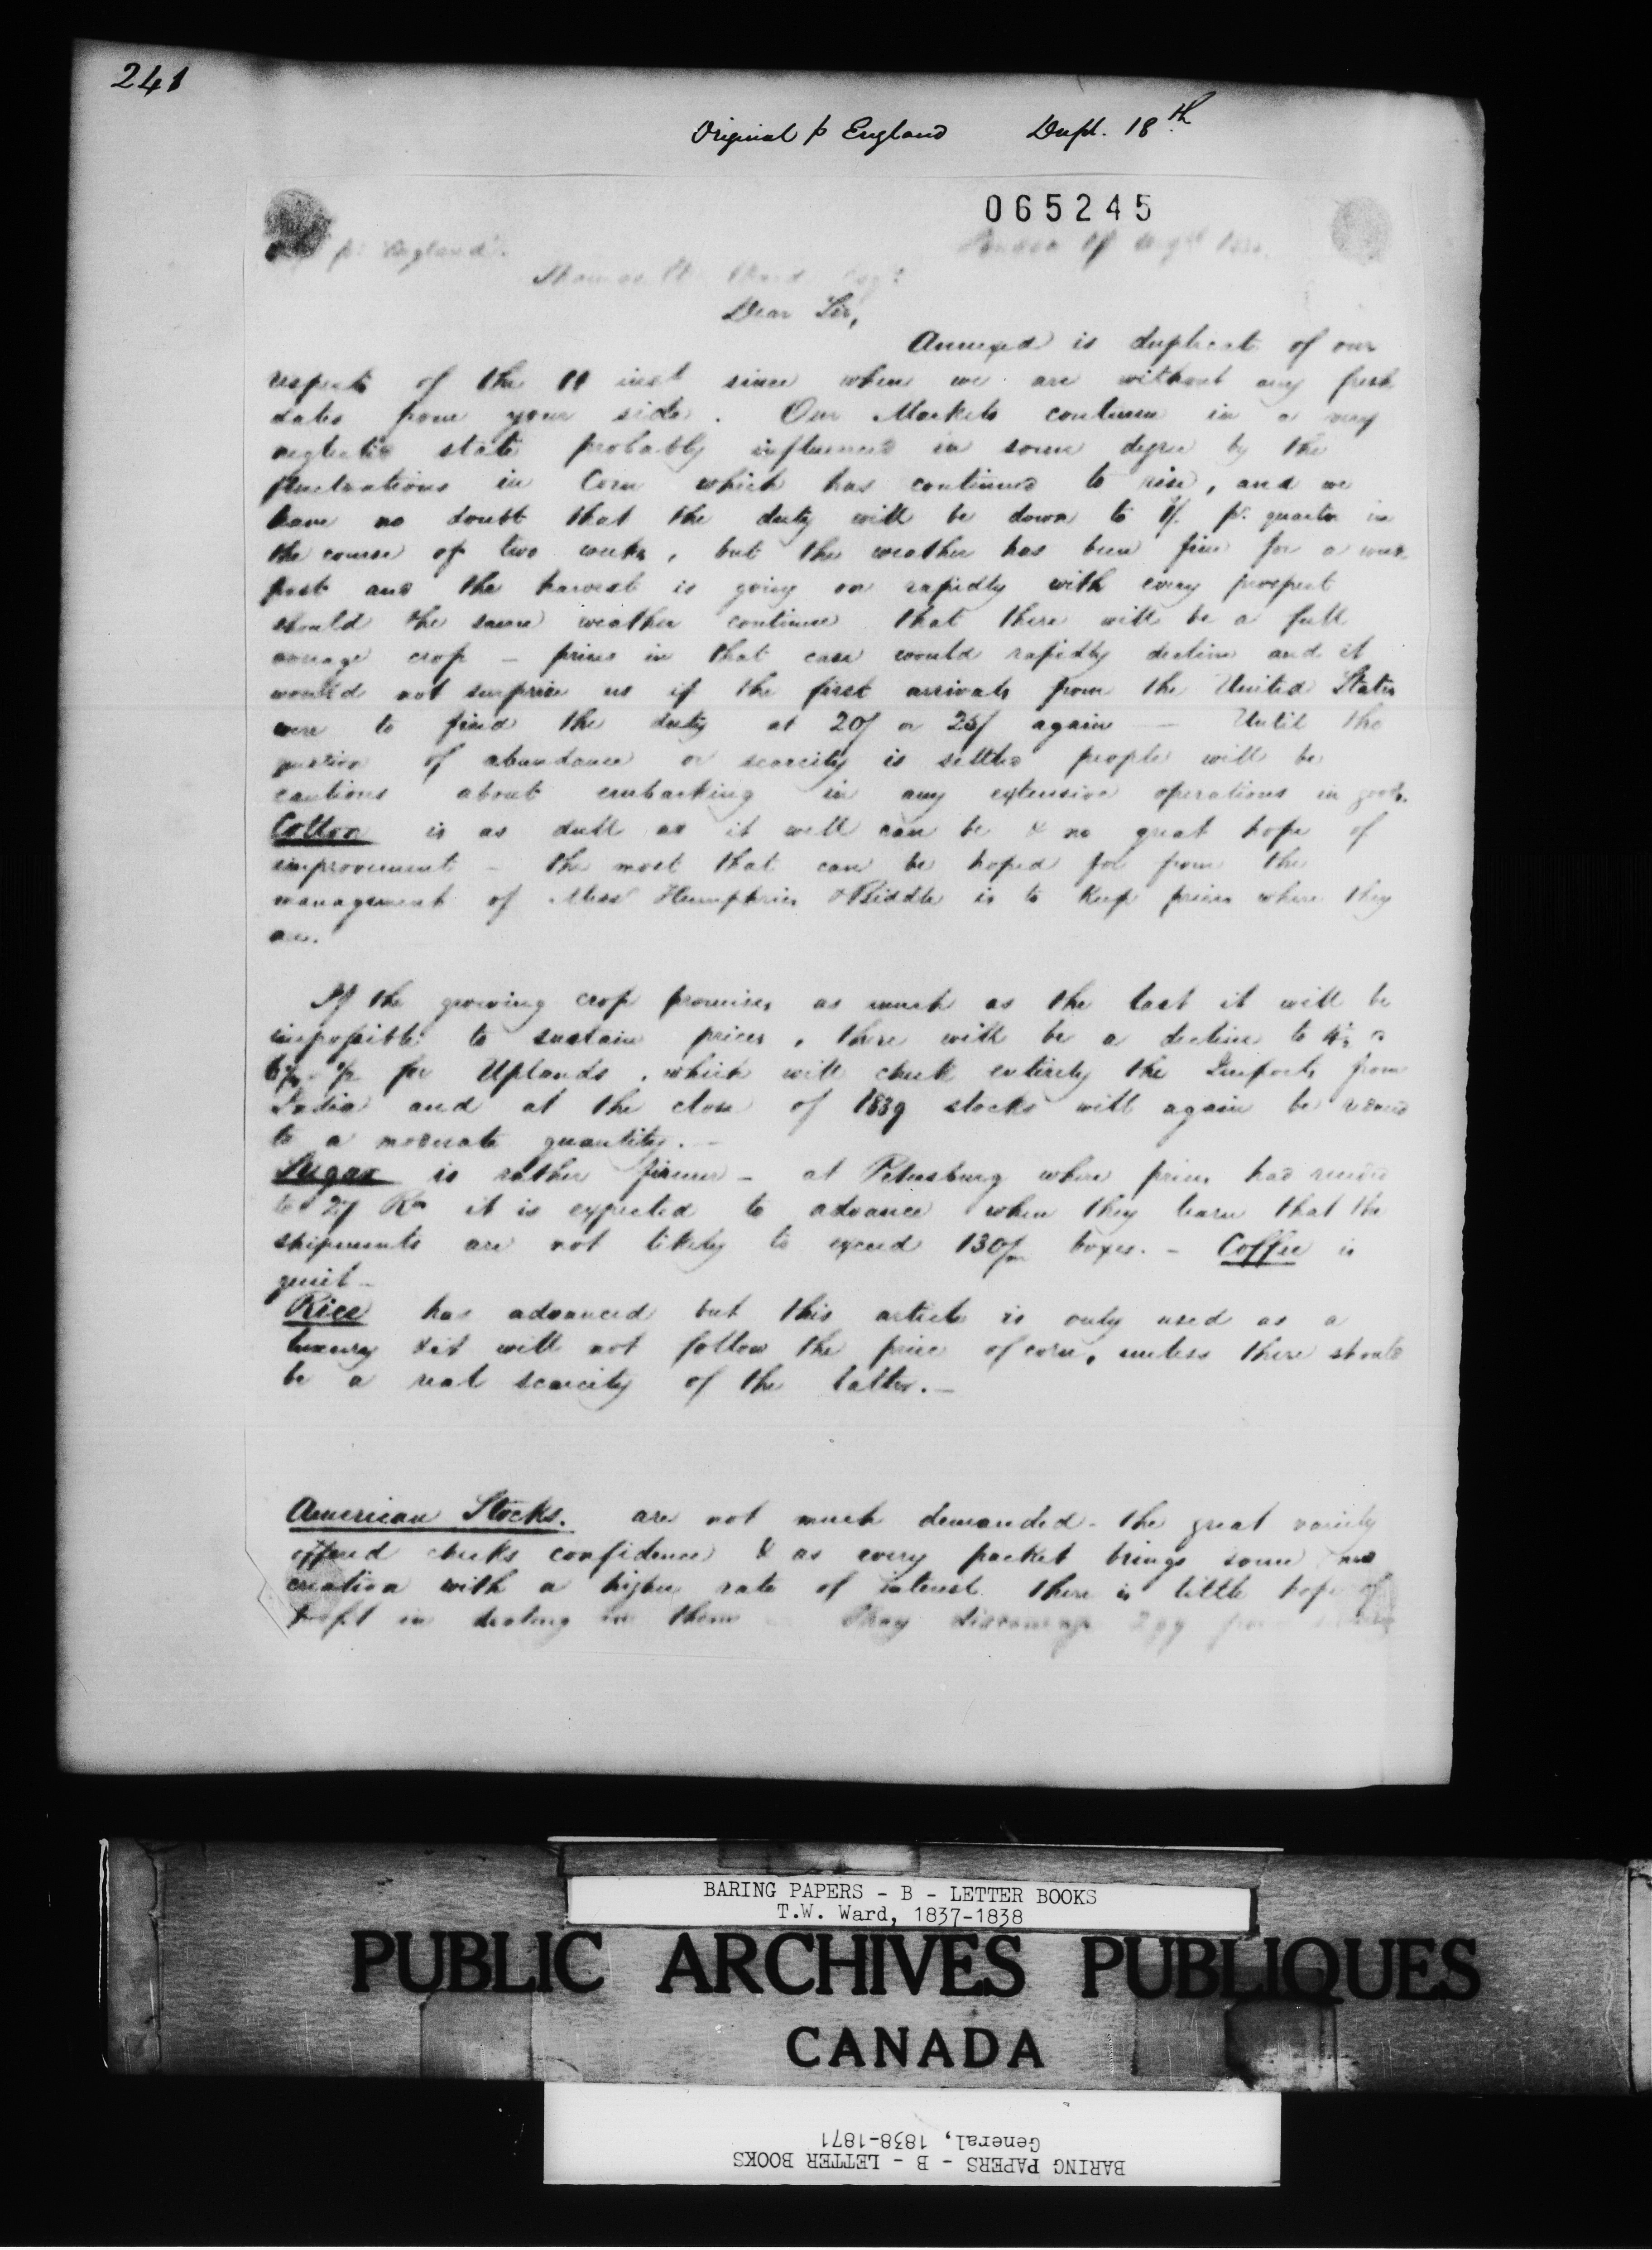 241
Original p England Dupl. 18th
065245
p. England.
Thomas W. Ward Esqr.
Dear Sir,
Annexed is duplicate of our
respects of the 11 inst since when we are without any fresh
dates from your side. Our Markets continue in a very
neglected state probably influenced in some degree by the
fluctuations in Corn which has continued to rise, and we
have no doubt that the duty will be down to 1/. pr. quarter in
the course of two weeks, but the weather has been fine for a week
past and the harvest is going on rapidly with every prospect
should the same weather continue that there will be a full
average crop - prices in that case would rapidly decline and it
would not surprise us if the first arrivals from the United States
were to find the duty at 20/ or 25/ again — Until the
question of abundance or scarcity is settled people will be
cautious about embarking in any extensive operations in goods.
Cotton is as dull as it well can be & no great hope of
improvement - the most that can be hoped for from the
management of Mess Humphries & Biddle is to keep prices where they
are.
If the growing crop promises as much as the last it will be
impossible to sustain prices, there will be a decline to
for Uplands, which will check entirely the Imports from
India and at the close of 1839 stocks will again be reduced
to a moderate quantity. -
Sugar is rather firmer - at Petersburg where prices had receded
to 27 Ro it is expected to advance when they learn that the
shipments are not likely to exceed 130/m boxes. - Coffee is
quiet -
Rice has advanced but this article is only used as a
luxury & it will not follow the price of corn, unless there should
be a real scarcity of the latter. -
American Stocks. are not much demanded - the great variety
offered checks confidence & as every packet brings some new
creation with a higher rate of interest there is little hope of
profit in dealing in them
BARING PAPERS - B - LETTER BOOKS
T.W. Ward, 1837-1838
PUBLIC ARCHIVES PUBLIQUES
CANADA
BARING PAPERS - B - LETTER BOOKS
General, 1838-1871